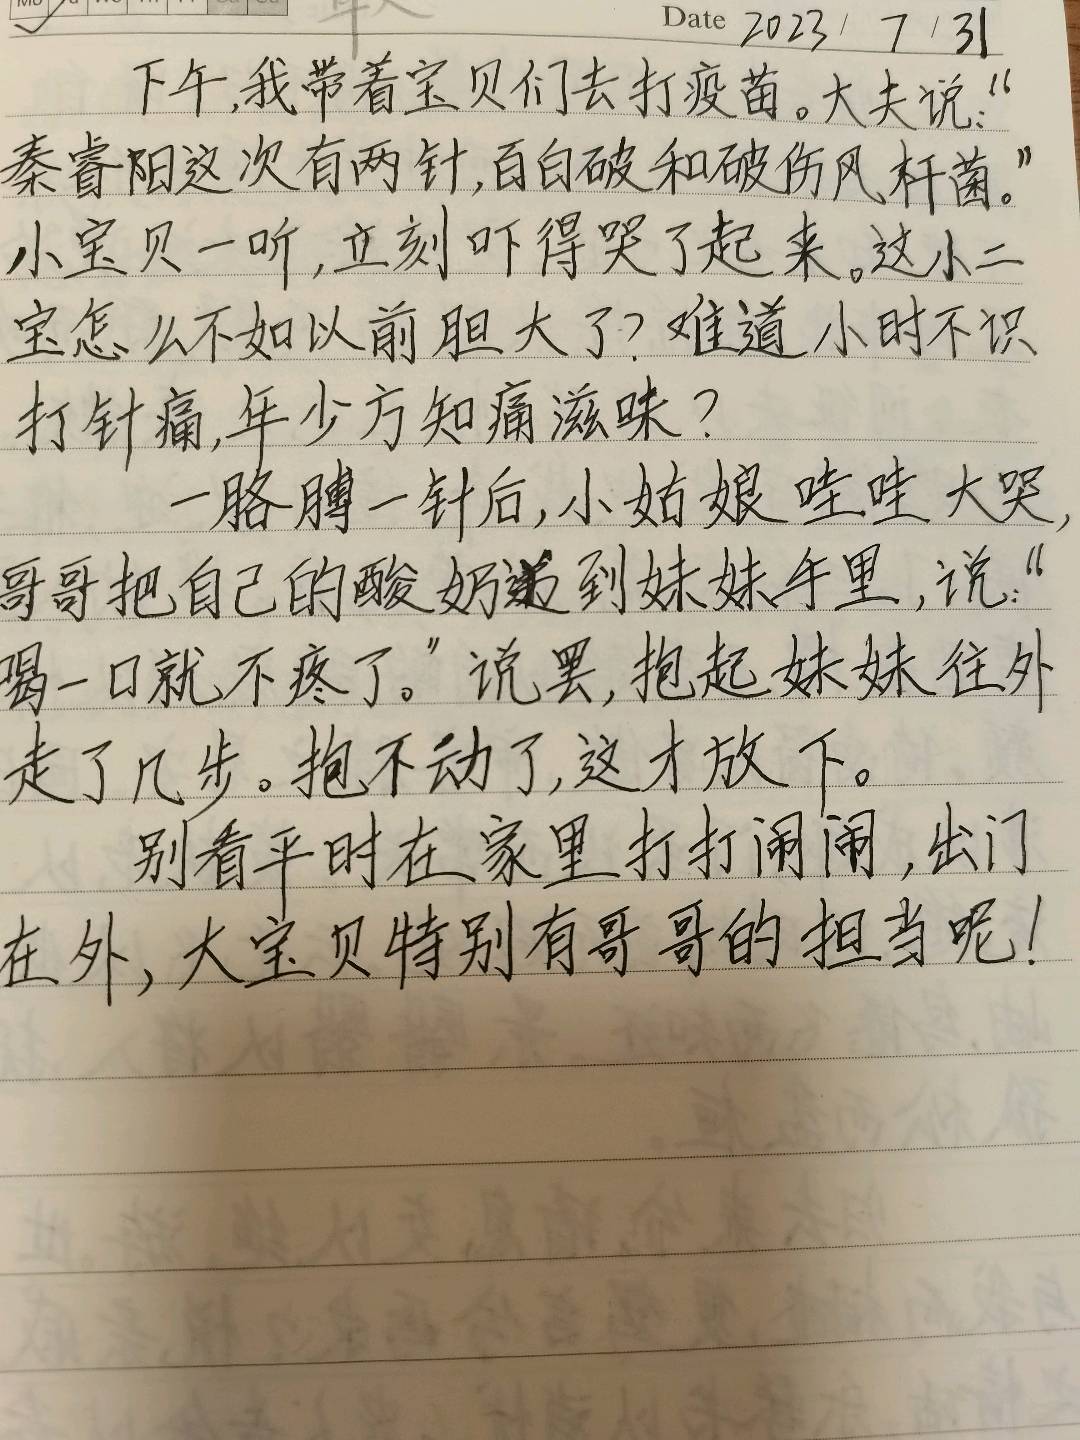 Mo Tu We Th Fr Sa Su
Date 2023 / 7 / 31
下午,我带着宝贝们去打疫苗。大夫说:“
秦睿阳这次有两针,百白破和破伤风杆菌。”
小宝贝一听,立刻吓得哭了起来。这小二
宝怎么不如以前胆大了?难道小时不识
打针痛,年少方知痛滋味?
一胳膊一针后,小姑娘哇哇大哭,
哥哥把自己的酸奶递到妹妹手里,说:“
喝一口就不疼了。”说罢,抱起妹妹往外
走了几步。抱不动了,这才放下。
别看平时在家里打打闹闹,出门
在外,大宝贝特别有哥哥的担当呢!